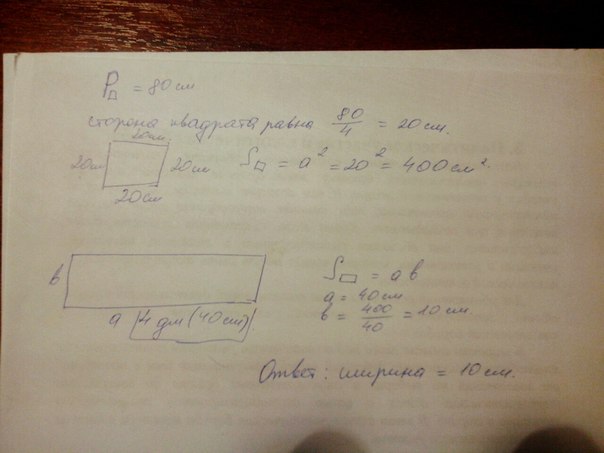 P□ = 80 см
сторона квадрата равна 80/4 = 20 см.
20см
20см
20см
20см
S□ = a² = 20² = 400 см².
в
a 4 дм (40 см)
S▭ = a в
a = 40 см
в = 400/40 = 10 см.
Ответ: ширина = 10 см.